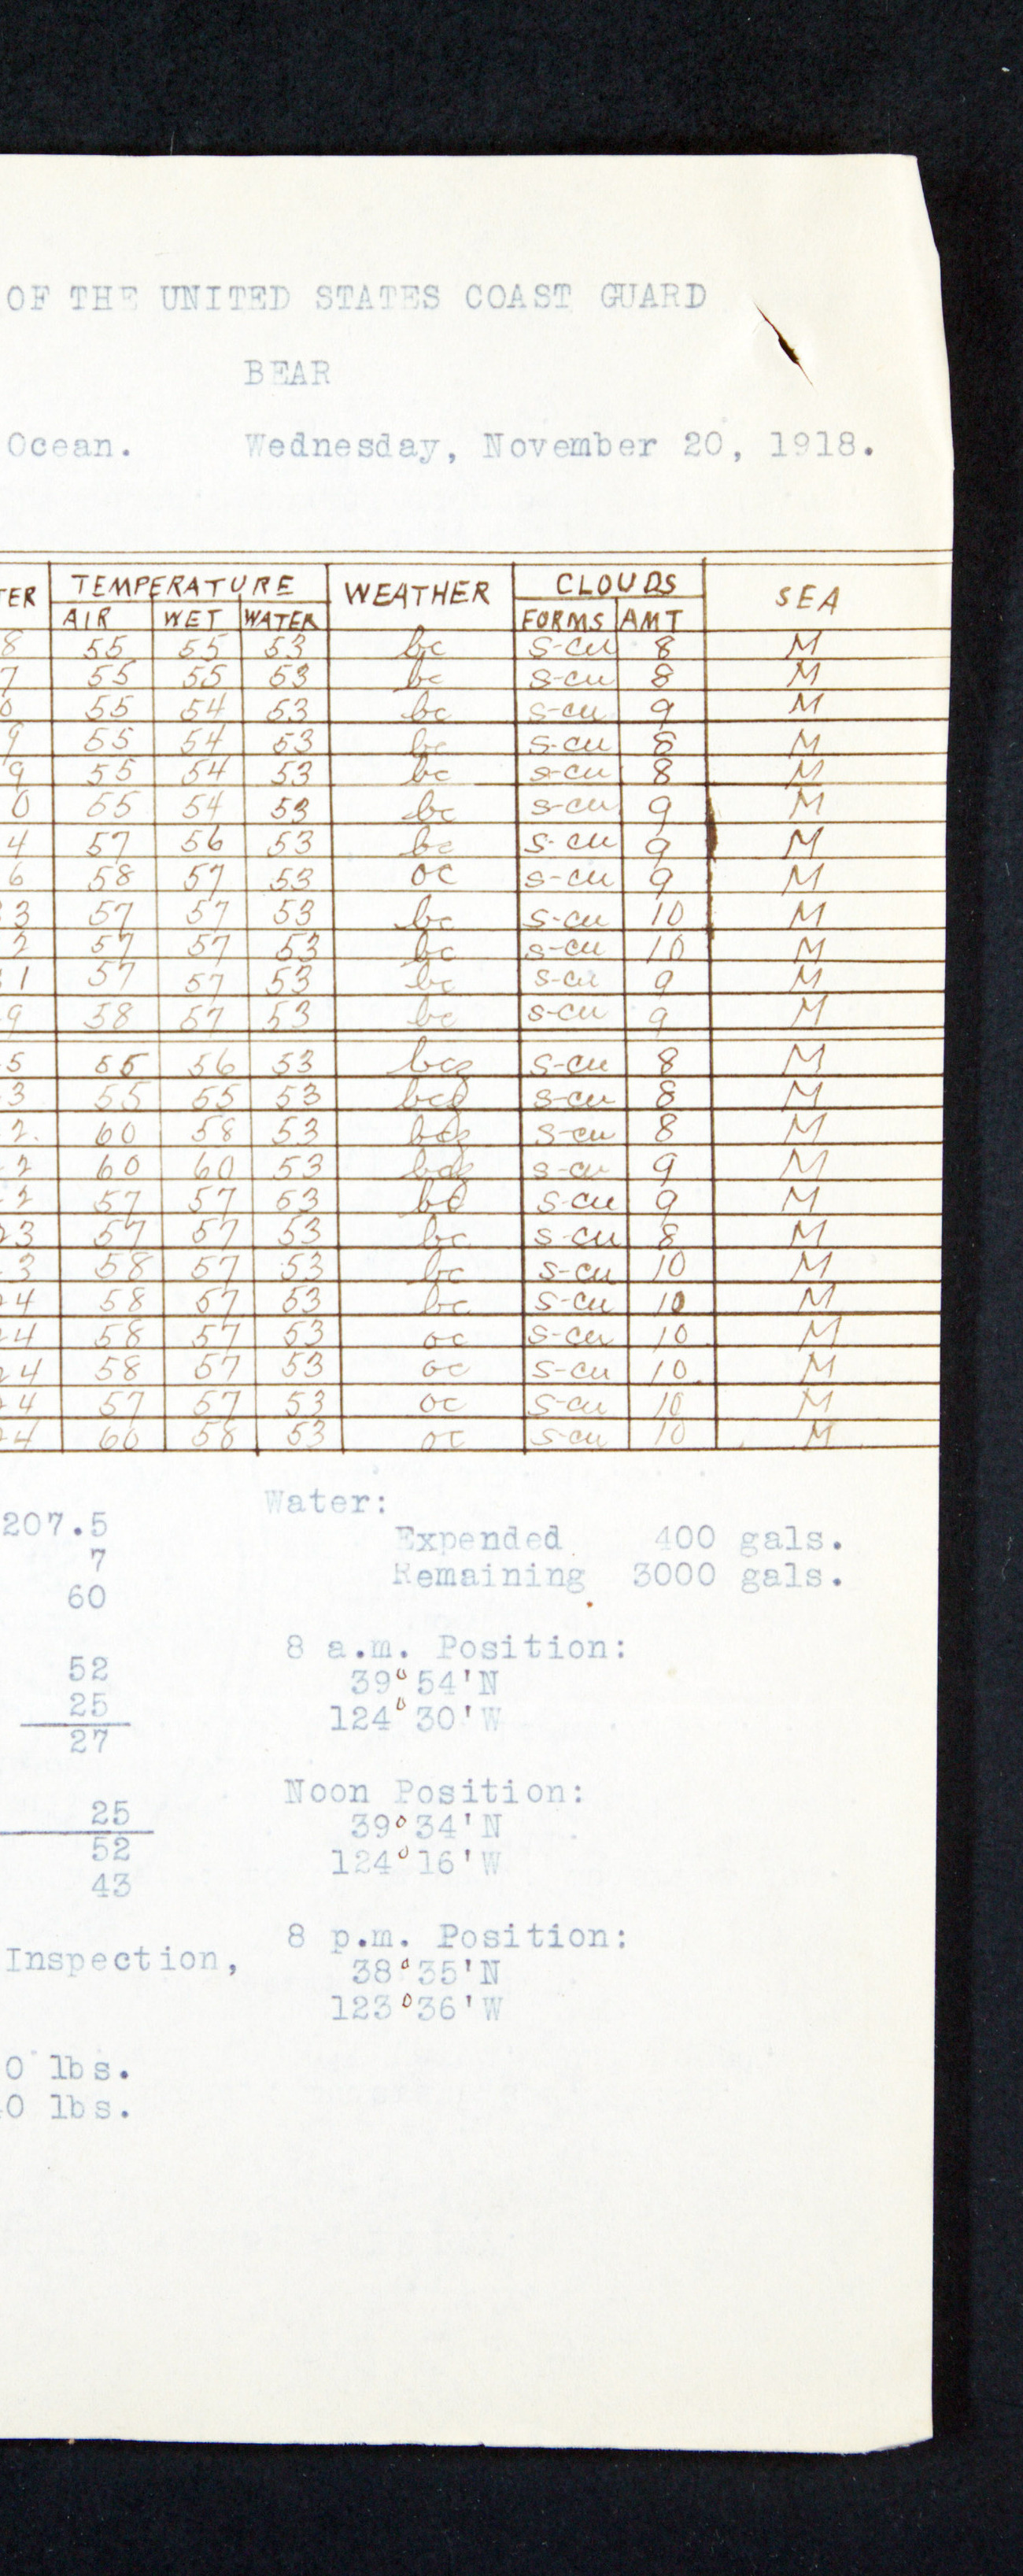 OF THE UNITED STATES COAST GUARD
BEAR
Ocean. Wednesday, November 20, 1918.
TER TEMPERATURE WEATHER CLOUDS SEA
AIR WET WATER FORMS AMT
8 55 55 53 bc s-cu 8 M
7 55 55 53 bc s-cu 8 M
0 55 54 53 bc s-cu 9 M
9 55 54 53 bc s-cu 8 M
9 55 54 53 bc s-cu 8 M
0 55 54 53 bc s-cu 9 M
4 57 56 53 bc s-cu 9 M
6 58 57 53 oc s-cu 9 M
3 57 57 53 bc s-cu 10 M
2 57 57 53 bc s-cu 10 M
1 57 57 53 bc s-cu 9 M
9 58 57 53 bc s-cu 9 M
5 55 56 53 s-cu 8 M
3 55 55 53 s-cu 8 M
2 60 58 53 s-cu 8 M
2 60 60 53 s-cu 9 M
2 57 57 53 s-cu 9 M
23 57 57 53 bc s-cu 8 M
3 58 57 53 bc s-cu 10 M
4 58 57 53 bc s-cu 10 M
4 58 57 53 oc s-cu 10 M
4 58 57 53 oc s-cu 10 M
4 57 57 53 oc s-cu 10 M
4 60 58 53 oc s-cu 10 M
207.5 Water:
7 Expended 400 gals.
60 Remaining 3000 gals.
52 8 a.m. Position:
25 39°54'N
27 124°30'W
Noon Position:
25 39°34'N
52 124°16'W
43
8 p.m. Position:
Inspection, 38°35'N
123°36'W
0 lbs.
0 lbs.